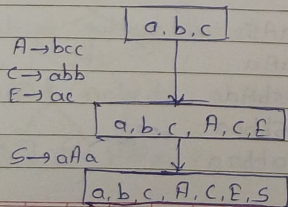 a, b, c
A → bcc
C → abb
E → ac
a, b, c, A, C, E
S → aAa
a, b, c, A, C, E, S